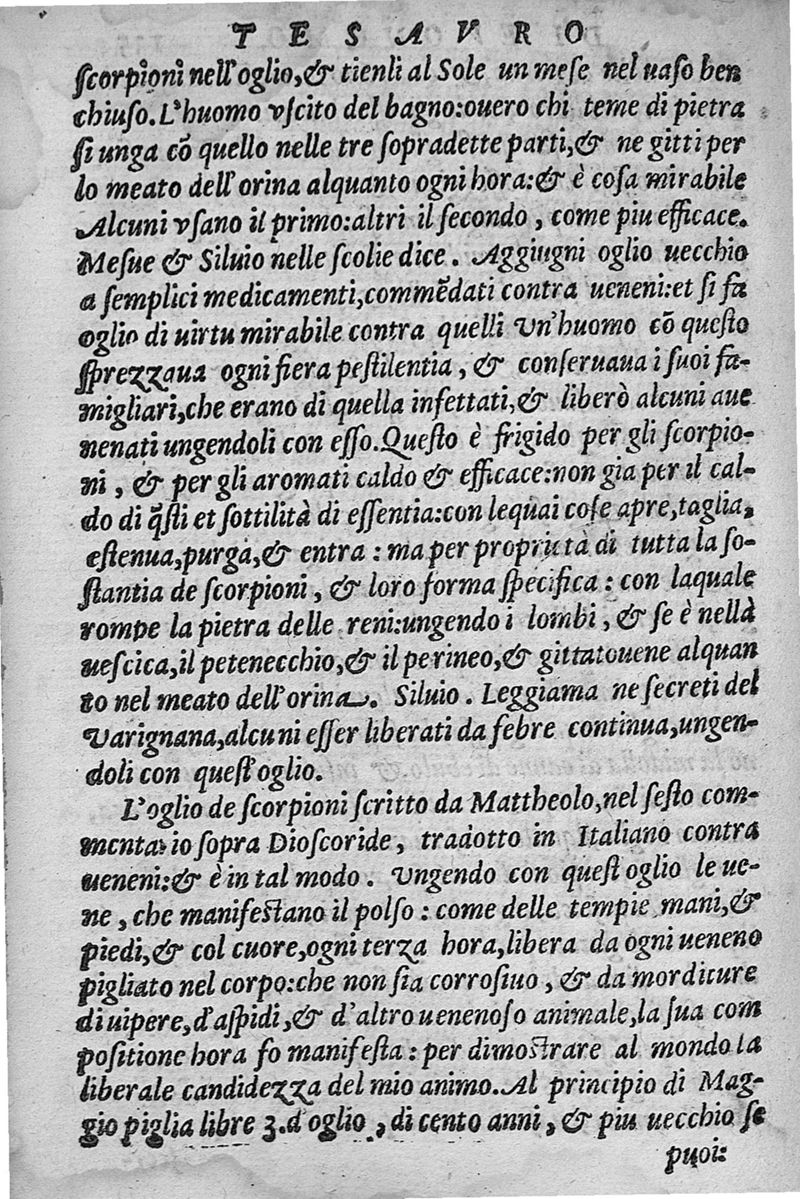 TESAVRO
ſcorpioni nell'oglio,& tienli al Sole un meſe nel uaſo ben
chiuſo. L'huomo vſcito del bagno:ouero chi teme di pietra
ſi unga cõ quello nelle tre ſopradette parti,& ne gitti per
lo meato dell'orina alquanto ogni hora:& è coſa mirabile
Alcuni vſano il primo:altri il ſecondo, come piu efficace.
Meſue & Siluio nelle ſcolie dice. Aggiugni oglio uecchio
a ſemplici medicamenti,commẽdati contra ueneni:et ſi fa
oglio di uirtu mirabile contra quelli Vn'huomo cõ queſto
ſprezzaua ogni fiera peſtilentia, & conſeruaua i ſuoi fa-
migliari,che erano di quella infettati,& liberò alcuni aue
nenati ungendoli con eſſo.Queſto è frigido per gli ſcorpio-
ni, & per gli aromati caldo & efficace:non gia per il cal-
do di q̃ſti et ſottilità di eſſentia:con lequai coſe apre,taglia,
eſtenua,purga,& entra: ma per proprietà di tutta la ſo-
ſtantia de ſcorpioni, & loro forma ſpecifica: con laquale
rompe la pietra delle reni:ungendo i lombi, & ſe è nella
ueſcica,il petenecchio,& il perineo,& gittatouene alquan
to nel meato dell'orina. Siluio. Leggiama ne ſecreti del
Varignana,alcuni eſſer liberati da febre continua,ungen-
doli con queſt'oglio.
L'oglio de ſcorpioni ſcritto da Mattheolo,nel ſeſto com-
mentario ſopra Dioſcoride, tradotto in Italiano contra
ueneni:& è in tal modo. Vngendo con queſt oglio le ue-
ne, che manifeſtano il polſo: come delle tempie mani,&
piedi,& col cuore,ogni terza hora,libera da ogni ueneno
pigliato nel corpo:che non ſia corroſiuo, & da morditure
di uipere,d'aſpidi,& d'altro uenenoſo animale,la ſua com
poſitione hora fo manifeſta: per dimoſtrare al mondo la
liberale candidezza del mio animo. Al principio di Mag-
gio piglia libre 3.d'oglio, di cento anni, & piu uecchio ſe
puoi: